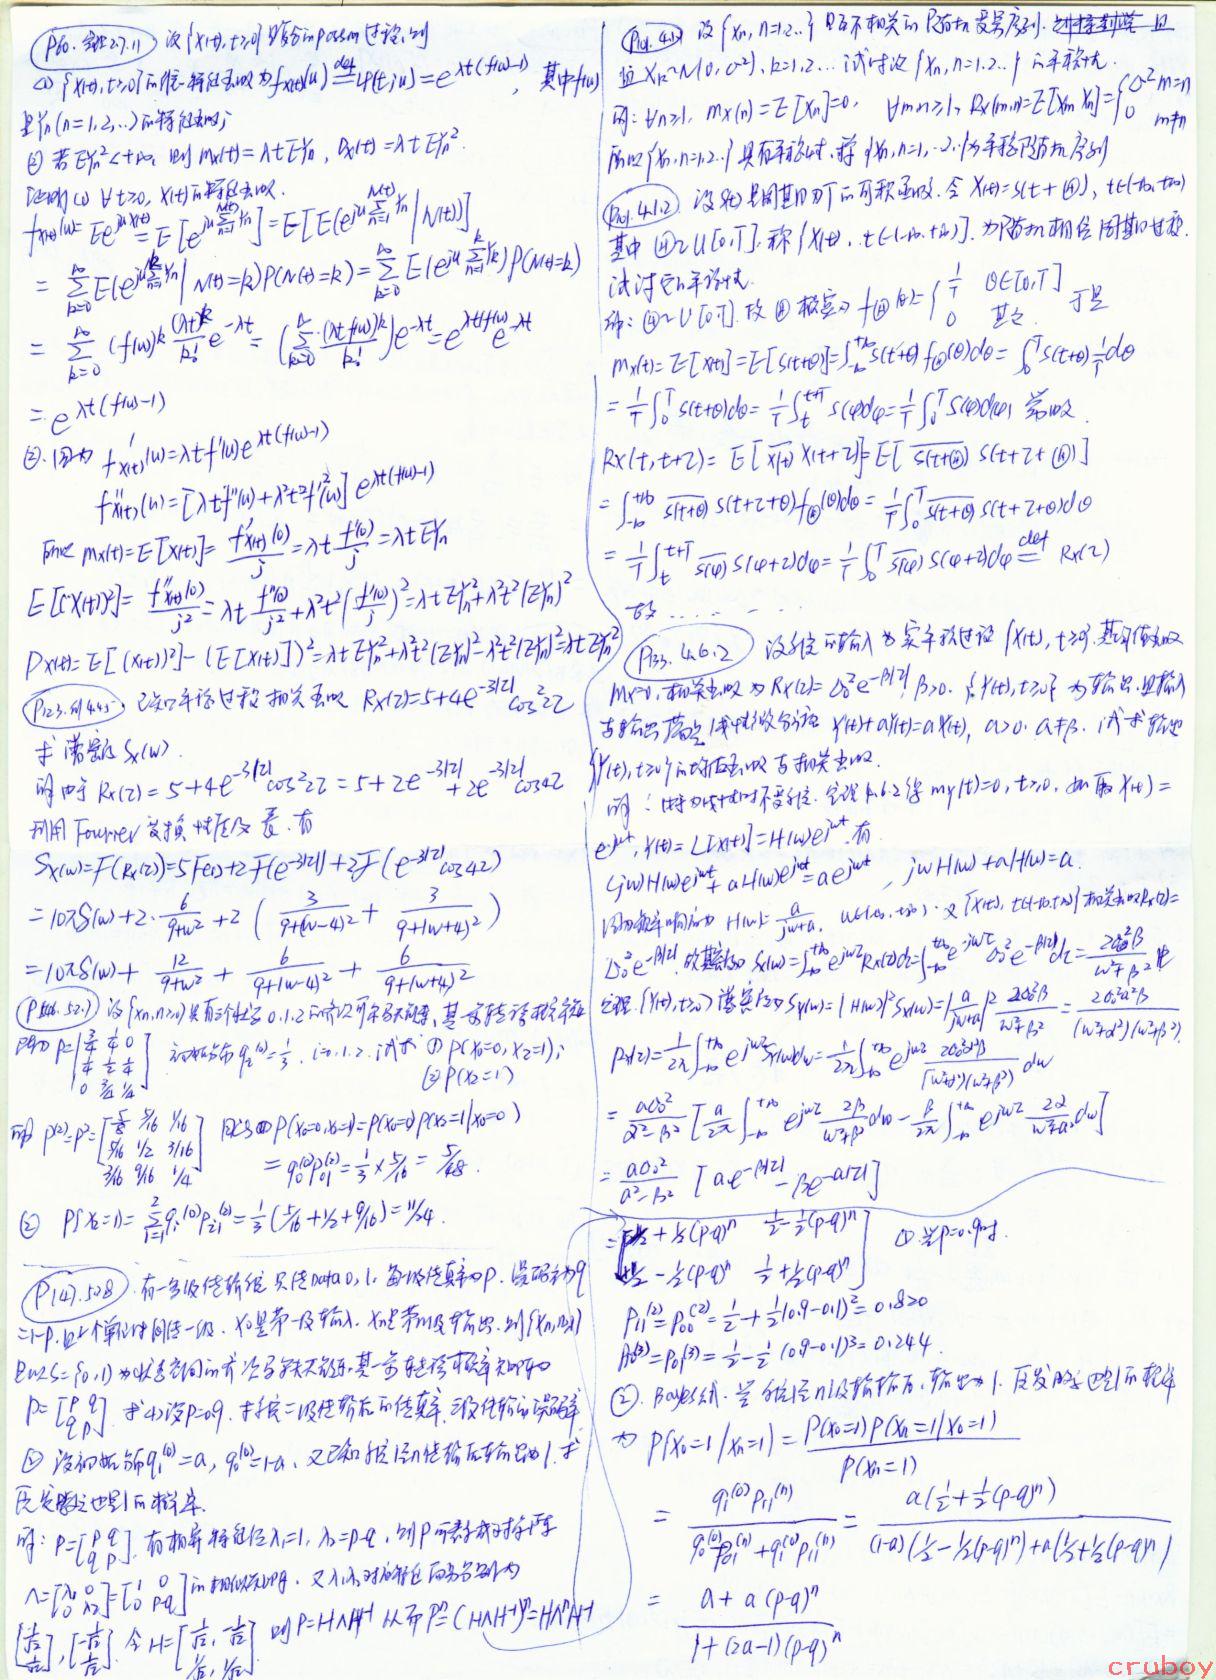 P60. 定理2.7.11 设{X(t), t≥0}是复合Poisson过程, 则
(1) {X(t), t≥0}的一维特征函数为 f_{X(t)}(u) \overset{def}{=} φ(t;u) = e^{λt(f(u)-1)}, 其中f(u)
是Y_n(n=1,2,…)的特征函数;
② 若EY_n^2<+∞, 则 m_X(t)=λtEY_n, D_X(t)=λtEY_n^2.
证明(1) ∀t≥0, X(t)的特征函数
f_{X(t)}(u)=Ee^{juX(t)}=E[e^{ju\sum_{n=1}^{N(t)}Y_n}]=E[E(e^{ju\sum_{n=1}^{N(t)}Y_n}|N(t))]
=\sum_{k=0}^{∞}E(e^{ju\sum_{n=1}^{k}Y_n}|N(t)=k)P(N(t)=k)=\sum_{k=0}^{∞}E(e^{ju\sum_{n=1}^{k}Y_n})P(N(t)=k)
=\sum_{k=0}^{∞}(f(u))^k\frac{(λt)^k}{k!}e^{-λt}=(\sum_{k=0}^{∞}\frac{(λtf(u))^k}{k!})e^{-λt}=e^{λtf(u)}e^{-λt}
=e^{λt(f(u)-1)}
②. 因为 f'_{X(t)}(u)=λtf'(u)e^{λt(f(u)-1)}
f''_{X(t)}(u)=[λtf''(u)+λ^2t^2f'^2(u)]e^{λt(f(u)-1)}
所以 m_X(t)=E[X(t)]=\frac{f'_{X(t)}(0)}{j}=λt\frac{f'(0)}{j}=λtEY_n
E[(X(t))^2]=\frac{f''_{X(t)}(0)}{j^2}=λt\frac{f''(0)}{j^2}+λ^2t^2(\frac{f'(0)}{j})^2=λtEY_n^2+λ^2t^2(EY_n)^2
D_X(t)=E[(X(t))^2]-(E[X(t)])^2=λtEY_n^2+λ^2t^2(EY_n)^2-λ^2t^2(EY_n)^2=λtEY_n^2
P123.例4.4.5. 已知平稳过程相关函数 R_X(τ)=5+4e^{-3|τ|}cos^2 2τ
求谱密度S_X(ω).
解 由于 R_X(τ)=5+4e^{-3|τ|}cos^2 2τ=5+2e^{-3|τ|}+2e^{-3|τ|}cos4τ
利用Fourier变换性质及表, 有
S_X(ω)=F(R_X(τ))=5F(1)+2F(e^{-3|τ|})+2F(e^{-3|τ|}cos4τ)
=10πδ(ω)+2·\frac{6}{9+ω^2}+2(\frac{3}{9+(ω-4)^2}+\frac{3}{9+(ω+4)^2})
=10πδ(ω)+\frac{12}{9+ω^2}+\frac{6}{9+(ω-4)^2}+\frac{6}{9+(ω+4)^2}
设{X_n,n≥0}具有三个状态0.1.2的齐次马尔可夫链, 其一步转移概率矩阵
P=[3/4 1/4 0; 1/4 1/2 1/4; 0 3/4 1/4] 初始分布 q_i^{(0)}=\frac{1}{3}, i=0.1.2. 试求 ① P(X_0=0, X_2=1);
② P(X_2=1)
解 P^{(2)}=P^2=[5/8 5/16 1/16; 5/16 1/2 3/16; 3/16 9/16 1/4] ① P(X_0=0,X_2=1)=P(X_0=0)P(X_2=1|X_0=0)
=q_0^{(0)}P_{01}^{(2)}=\frac{1}{3}×5/16=5/48.
② P{X_2=1}=\sum_{i=0}^{2}q_i^{(0)}P_{i1}^{(2)}=\frac{1}{3}(5/16+1/2+9/16)=11/24.
P147.5.2.8 有一多级传输系统 只传Data 0, 1, 每级传真率为P, 误码率为q
=1-P, 且一个单位时间传一级. X_0是第一级输入, X_n是第n级输出, 则{X_n,n≥0}
是以S={0,1}为状态空间的齐次马尔可夫链, 其一步转移概率矩阵为
P=[P q; q P] 求(1)设P=0.9, 求系统二级传输后的传真率, 三级传输后的误码率
② 设初始分布q_1^{(0)}=a, q_0^{(0)}=1-a, 又已知系统经n级传输后输出为1, 求
原发数字也是1的概率.
解: P=[P q; q P], 有相异特征值λ_1=1, λ_2=P-q, 则P可表示成对角阵
Λ=[λ_1 0; 0 λ_2]=[1 0; 0 P-q]的相似矩阵, 又λ_1,λ_2对应的特征向量分别为
[1/√2; 1/√2], [-1/√2; 1/√2]. 令H=[1/√2, -1/√2; 1/√2, 1/√2] 则P=HΛH^{-1} 从而P^n=(HΛH^{-1})^n=HΛ^nH^{-1}
P101.4.1.1 设{X_n, n=1,2…}是互不相关的随机变量序列, 且
且X_k~N(0,σ^2), k=1,2… 试讨论{X_n, n=1.2…}的平稳性.
解: ∀n≥1, m_X(n)=E[X_n]=0, ∀m,n≥1, R_X(m,n)=E[X_m X_n]={σ^2 m=n; 0 m≠n
所以{X_n,n=1,2..}具有平稳性, 称{X_n,n=1,2…}为平稳随机序列
4.1.2 设S(t)是周期为T的可积函数, 令X(t)=S(t+Θ), t∈(-∞,+∞)
其中Θ~U[0,T], 称{X(t), t∈(-∞,+∞)}, 为随机相位周期过程.
试讨论它的平稳性.
解: Θ~U[0,T], 故Θ概密为 f_Θ(θ)={\frac{1}{T} θ∈[0,T]; 0 其它 于是
m_X(t)=E[X(t)]=E[S(t+Θ)]=∫_{-∞}^{+∞}S(t+θ)f_Θ(θ)dθ=∫_0^T S(t+θ)\frac{1}{T}dθ
=\frac{1}{T}∫_0^T S(t+θ)dθ=\frac{1}{T}∫_t^{t+T}S(φ)dφ=\frac{1}{T}∫_0^T S(φ)dφ, 常数.
R_X(t,t+τ)=E[\overline{X(t)}X(t+τ)]=E[\overline{S(t+Θ)}S(t+τ+Θ)]
=∫_{-∞}^{+∞}\overline{S(t+θ)}S(t+τ+θ)f_Θ(θ)dθ=\frac{1}{T}∫_0^T\overline{S(t+θ)}S(t+τ+θ)dθ
=\frac{1}{T}∫_t^{t+T}\overline{S(φ)}S(φ+τ)dφ=\frac{1}{T}∫_0^T\overline{S(φ)}S(φ+τ)dφ\overset{def}{=}R_X(τ)
故 … … …
P133. 4.6.2 设系统的输入为实平稳过程{X(t), t≥0}, 其均值函数
m_X=0, 相关函数为R_X(τ)=σ_0^2e^{-β|τ|}, β>0. {Y(t),t≥0}为输出, 且输入
与输出满足线性微分方程 Y'(t)+aY(t)=aX(t), a>0. a≠β. 试求输出
{Y(t), t≥0}的均值函数与相关函数.
解: 此为线性时不变系统, 定理4.6.2得 m_Y(t)=0, t≥0, 如取X(t)=
e^{jωt}, Y(t)=L[X(t)]=H(ω)e^{jωt}, 有
(jω)H(ω)e^{jωt}+aH(ω)e^{jωt}=ae^{jωt}, jωH(ω)+aH(ω)=a.
频率响应为 H(ω)=\frac{a}{jω+a}, ω∈(-∞,+∞). 又{X(t), t∈(-∞,+∞)}相关函数R_X(τ)=
σ_0^2e^{-β|τ|}, 故谱密为S_X(ω)=∫_{-∞}^{+∞}e^{-jωτ}R_X(τ)dτ=∫_{-∞}^{+∞}e^{-jωτ}σ_0^2e^{-β|τ|}dτ=\frac{2σ_0^2β}{ω^2+β^2} 由
定理, {Y(t),t≥0}谱密度为S_Y(ω)=|H(ω)|^2S_X(ω)=|\frac{a}{jω+a}|^2\frac{2σ_0^2β}{ω^2+β^2}=\frac{2σ_0^2a^2β}{(ω^2+a^2)(ω^2+β^2)}
R_Y(τ)=\frac{1}{2π}∫_{-∞}^{+∞}e^{jωτ}S_Y(ω)dω=\frac{1}{2π}∫_{-∞}^{+∞}e^{jωτ}\frac{2σ_0^2a^2β}{(ω^2+a^2)(ω^2+β^2)}dω
=\frac{aσ_0^2}{a^2-β^2}[\frac{a}{2π}∫_{-∞}^{+∞}e^{jωτ}\frac{2β}{ω^2+β^2}dω-\frac{β}{2π}∫_{-∞}^{+∞}e^{jωτ}\frac{2a}{ω^2+a^2}dω]
=\frac{aσ_0^2}{a^2-β^2}[ae^{-β|τ|}-βe^{-a|τ|}]
=[1/2+1/2(P-q)^n 1/2-1/2(P-q)^n; 1/2-1/2(P-q)^n 1/2+1/2(P-q)^n] ① 当P=0.9时.
P_{11}^{(2)}=P_{00}^{(2)}=\frac{1}{2}+\frac{1}{2}(0.9-0.1)^2=0.820
P_{10}^{(3)}=P_{01}^{(3)}=\frac{1}{2}-\frac{1}{2}(0.9-0.1)^3=0.244.
②. Bayes公式, 当系统经n级传输后, 输出为1, 原发数字也是1的概率
为 P{X_0=1|X_n=1}=\frac{P(X_0=1)P(X_n=1|X_0=1)}{P(X_n=1)}
=\frac{q_1^{(0)}P_{11}^{(n)}}{q_0^{(0)}P_{01}^{(n)}+q_1^{(0)}P_{11}^{(n)}}=\frac{a(\frac{1}{2}+\frac{1}{2}(P-q)^n)}{(1-a)(\frac{1}{2}-\frac{1}{2}(P-q)^n)+a(\frac{1}{2}+\frac{1}{2}(P-q)^n)}
=\frac{a+a(P-q)^n}{1+(2a-1)(P-q)^n}
cruboy